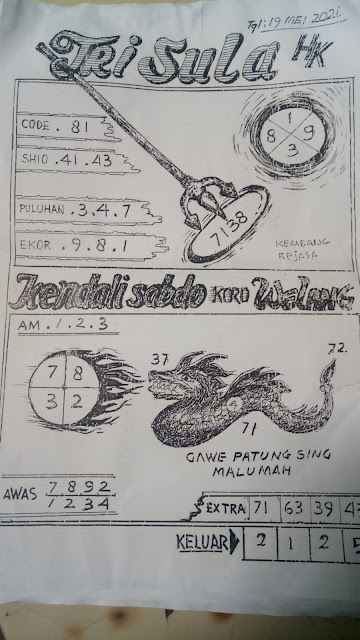 Tgl: 19 MEI 2021
Tri Sula HK
CODE . 81
SHIO . 41 . 43
PULUHAN . 3 . 4 . 7
EKOR . 9 . 8 . 1
1
8 9
3
7138
KEMBANG
REJASA
Kendali sabdo KORO Walang
AM . 1 . 2 . 3
7 8
3 2
37
72.
71
GAWE PATUNG SING
MALUMAH
AWAS 7 8 9 2
1 2 3 4
EXTRA 71 63 39
KELUAR 2 1 2 5